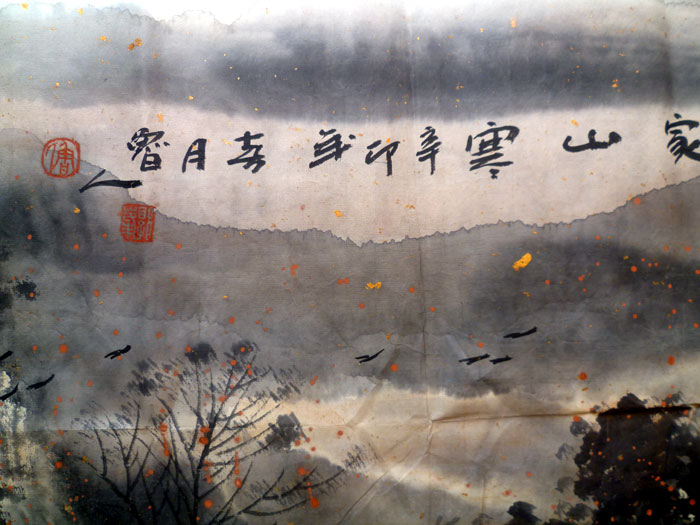 家山寒辛卯年春月人